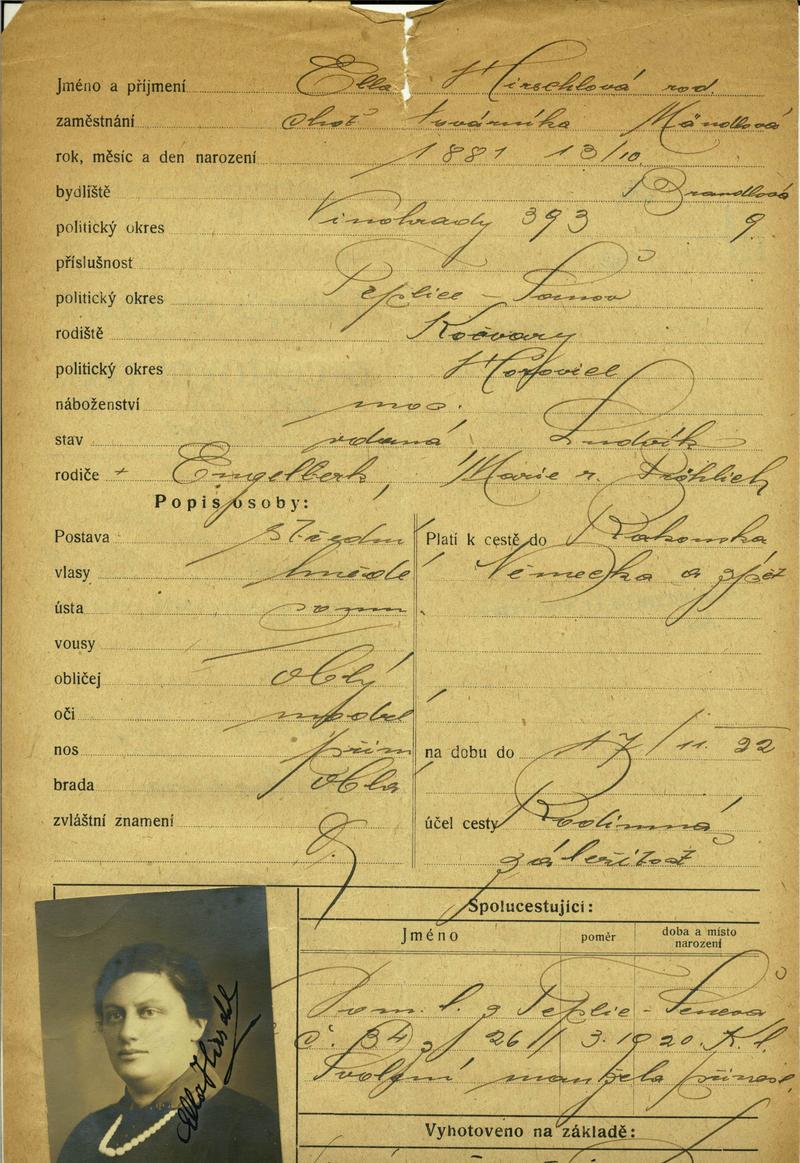 Jméno a příjmení Ella Hirschlová rod.
zaměstnání choť továrníka Mändlová
rok, měsíc a den narození 1881 13/10
bydliště Brandlova
politický okres Vinohrady 393 9.
příslušnost
politický okres Teplice - Šanov
rodiště Kočvary
politický okres Hořovice
náboženství mos.
stav vdaná Ludvík
rodiče + Engelbert, Marie r. Fröhlich
Popis osoby:
Postava střední
Platí k cestě do Rakouska
vlasy hnědé
Německa a zpět
ústa
vousy
obličej oblý
oči modré
nos přím
na dobu do 17/11. 22
brada oblá
zvláštní znamení
účel cesty Rodinná
záležitost
Spolucestující:
Jméno poměr doba a místo
narození
Dom. l. z Teplic - Šanova
č. 34 z 26/3. 1920. K. l.
Svolení manžela
Ella Hirschl
Vyhotoveno na základě: